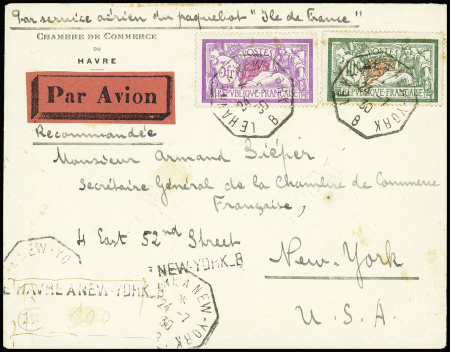 Par service aérien du paquebot "Ile de France"
CHAMBRE DE COMMERCE
DU
HAVRE
Par Avion
Recommandée
POSTES
REPUBLIQUE FRANÇAISE
POSTES
REPUBLIQUE FRANÇAISE
LE HA
YORK B
Monsieur Armand Siéper
Secrétaire Général de la Chambre de Commerce
Française,
4 East 52nd Street
New-York
U.S.A.
A NEW-YO
LE HAVRE A NEW-YORK_B
NEW-YORK_B
A NEW-YORK
*
-7
24
30